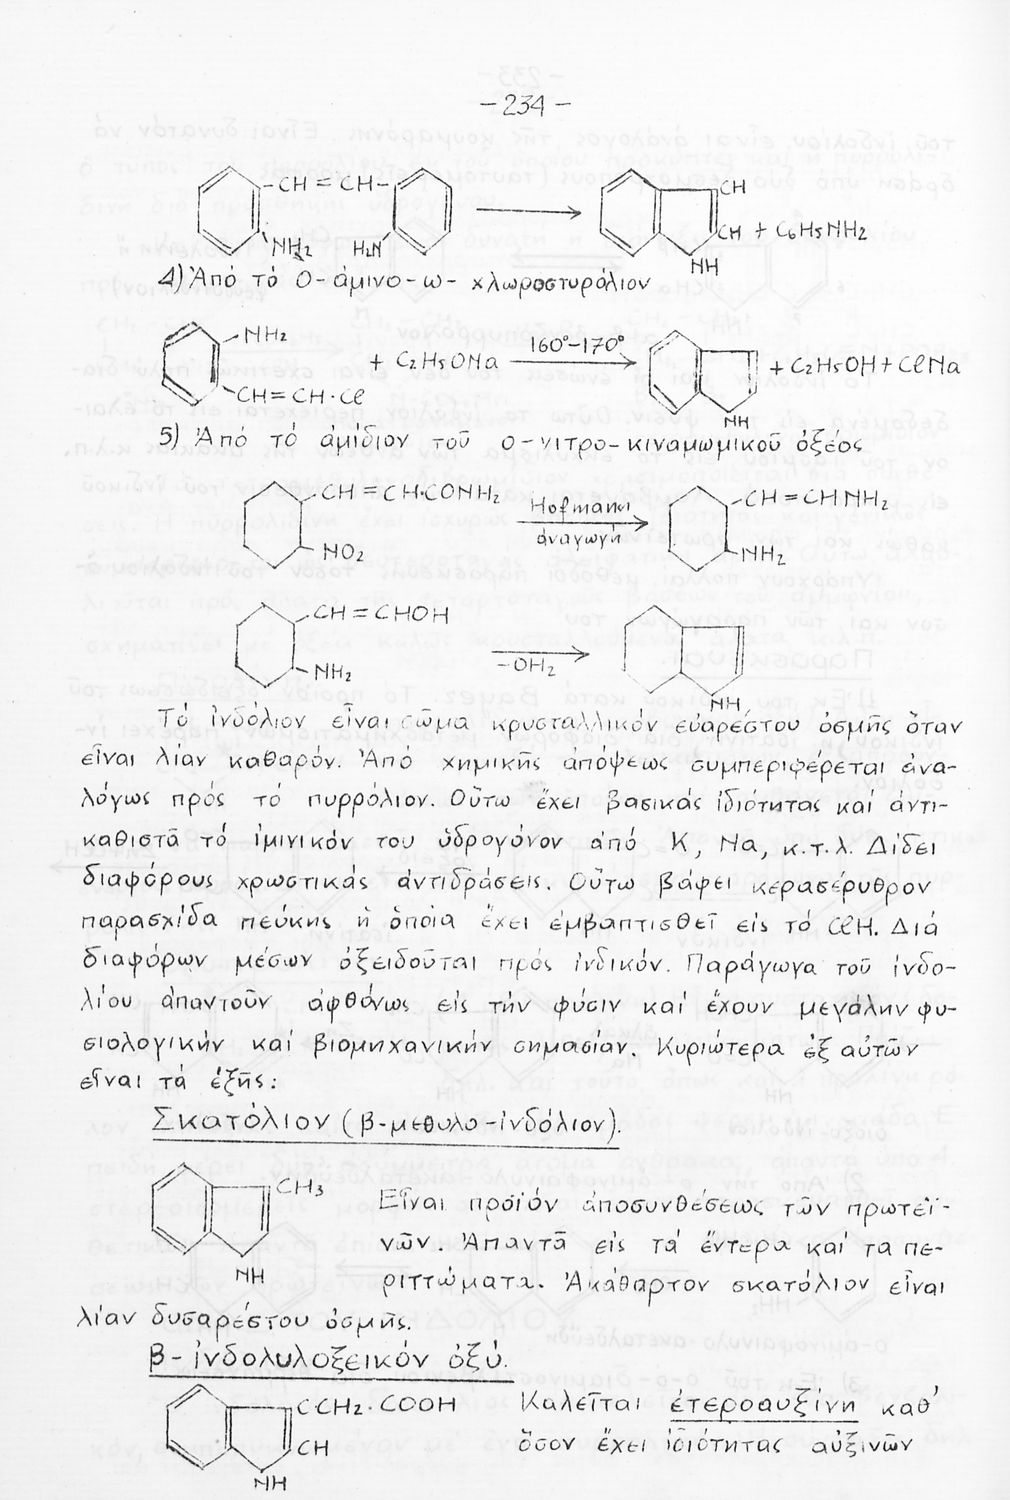 -234-
-CH=CH-
CH
NH2 H2N
CH + C6H5NH2
NH
4) Ἀπό τό O-ἀμινο-ω- χλωροστυρόλιον
NH2
+ C2H5ONa 160°-170° + C2H5OH + ClNa
CH=CH·Cl
NH
5) Ἀπό τό ἀμίδιον τοῦ ο-νιτρο-κιναμωμικοῦ ὀξέος
CH=CH·CONH2 Hofmann CH=CHNH2
NO2 ἀναγωγή NH2
CH=CHOH
NH2 -OH2
NH
Τό ἰνδόλιον εἶναι σῶμα κρυσταλλικόν εὐαρέστου ὀσμῆς ὅταν
εἶναι λίαν καθαρόν. Ἀπό χημικῆς ἀπόψεως συμπεριφέρεται ἀνα-
λόγως πρός τό πυρρόλιον. Οὕτω ἔχει βασικάς ἰδιότητας καί ἀντι-
καθιστᾶ τό ἰμινικόν του ὑδρογόνον ἀπό K, Na, κ.τ.λ. Δίδει
διαφόρους χρωστικάς ἀντιδράσεις. Οὕτω βάφει κερασέρυθρον
παρασχίδα πεύκης ἡ ὁποία ἔχει ἐμβαπτισθεῖ εἰς τό ClH. Διά
διαφόρων μέσων ὀξειδοῦται πρός ἰνδικόν. Παράγωγα τοῦ ἰνδο-
λίου ἀπαντοῦν ἀφθόνως εἰς τήν φύσιν καί ἔχουν μεγάλην φυ-
σιολογικήν καί βιομηχανικήν σημασίαν. Κυριώτερα ἐξ αὐτῶν
εἶναι τά ἑξῆς:
Σκατόλιον (β-μεθυλο-ἰνδόλιον).
CH3
Εἶναι προϊόν ἀποσυνθέσεως τῶν πρωτεϊ-
νῶν. Ἀπαντᾶ εἰς τά ἔντερα καί τα πε-
NH
ριττώματα. Ἀκάθαρτον σκατόλιον εἶναι
λίαν δυσαρέστου ὀσμῆς.
β-ἰνδολυλοξεικόν ὀξύ.
CCH2·COOH Καλεῖται ἑτεροαυξίνη καθ'
CH ὅσον ἔχει ἰδιότητας αὐξινῶν
NH